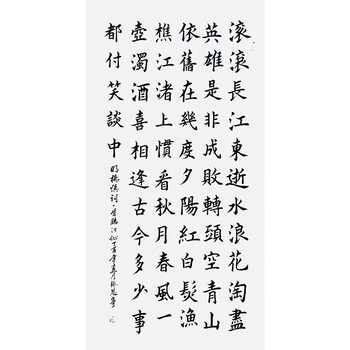 滾滾長江東逝水浪花淘盡
英雄是非成敗轉頭空青山
依舊在幾度夕陽紅白髮漁
樵江渚上慣看秋月春風一
壺濁酒喜相逢古今多少事
都付笑談中
明楊慎詞一首臨江仙丁酉年夏月